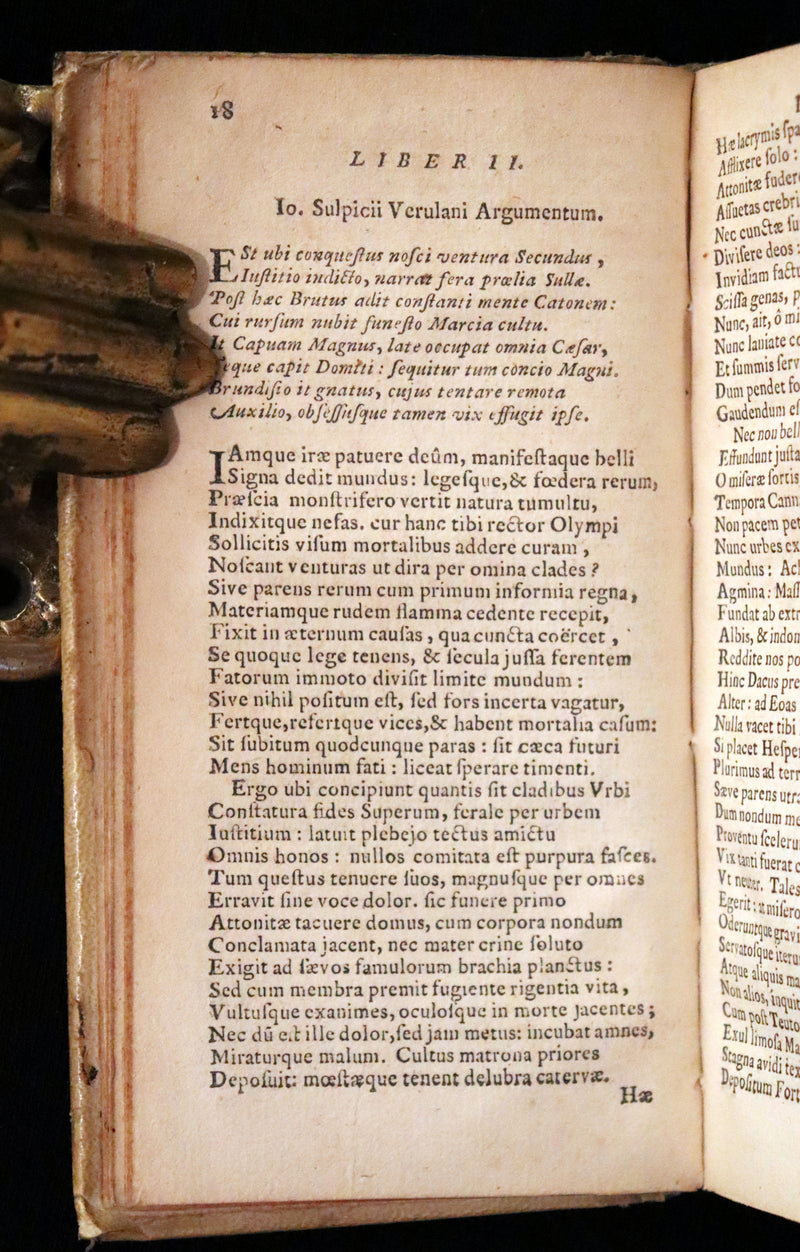 18
LIBER II.
Io. Sulpicii Verulani Argumentum.
ESt ubi conqueſtus noſci ventura Secundus ,
Iuſtitio indicto, narrat fera prœlia Sullæ.
Poſt hæc Brutus adit conſtanti mente Catonem :
Cui rurſum nubit funeſto Marcia cultu.
It Capuam Magnus, late occupat omnia Cæſar,
eque capit Domiti : ſequitur tum concio Magni.
Brundiſio it gnatus, cujus tentare remota
Auxilio, obſeſſuſque tamen vix effugit ipſe.
IAmque iræ patuere deûm, manifeſtaque belli
Signa dedit mundus: legeſque,& fœdera rerum,
Præſcia monſtrifero vertit natura tumultu,
Indixitque nefas. cur hanc tibi rector Olympi
Sollicitis viſum mortalibus addere curam ,
Noſcant venturas ut dira per omina clades ?
Sive parens rerum cum primum informia regna,
Materiamque rudem flamma cedente recepit,
Fixit in æternum cauſas , qua cuncta coërcet ,
Se quoque lege tenens, & ſecula juſſa ferentem
Fatorum immoto diviſit limite mundum :
Sive nihil poſitum eſt, ſed fors incerta vagatur,
Fertque,refertque vices,& habent mortalia caſum:
Sit ſubitum quodcunque paras : ſit cæca futuri
Mens hominum fati : liceat ſperare timenti.
Ergo ubi concipiunt quantis ſit cladibus Vrbi
Conſtatura fides Superum, ferale per urbem
Iuſtitium : latuit plebejo tectus amictu
Omnis honos : nullos comitata eſt purpura faſces.
Tum queſtus tenuere ſuos, magnuſque per omnes
Erravit ſine voce dolor. ſic funere primo
Attonitæ tacuere domus, cum corpora nondum
Conclamata jacent, nec mater crine ſoluto
Exigit ad ſævos famulorum brachia planctus :
Sed cum membra premit fugiente rigentia vita ,
Vultuſque exanimes, oculoſque in morte jacentes ;
Nec dū eſt ille dolor,ſed jam metus: incubat amnes,
Miraturque malum. Cultus matrona priores
Depoſuit: mœſtæque tenent delubra catervæ.
Hæ
Hæ lacrymis ſpa
Afflixere ſolo :
Attonitæ fuder
Aſſuetas crebri
Nec cunctæ ſu
Diviſere deos :
Invidiam factu
Sciſſa genas, p
Nunc, ait, ô mi
Nunc laniate co
Et ſummis ferv
Dum pendet fo
Gaudendum eſ
Nec non bell
Effundunt juſta
O miſeræ ſortis
Tempora Cann
Non pacem pet
Nunc urbes ex
Mundus : Ach
Agmina : Maſſ
Fundat ab extr
Albis, & indon
Reddite nos po
Hinc Dacus pre
Alter : ad Eoas
Nulla vacet tibi
Si placet Heſpe
Plurimus ad terr
Sæve parens utr
Dum nondum me
Proventu ſceleru
Vix tanti fuerat c
Vt neuter. Tales
Egerit : at miſero
Oderuntque gravi
Servatoſque iteru
Atque aliquis ma
Non alios, inquit
Cum poſt Teuto
Exul limoſa Ma
Stagna avidi tex
Depoſitum Fort